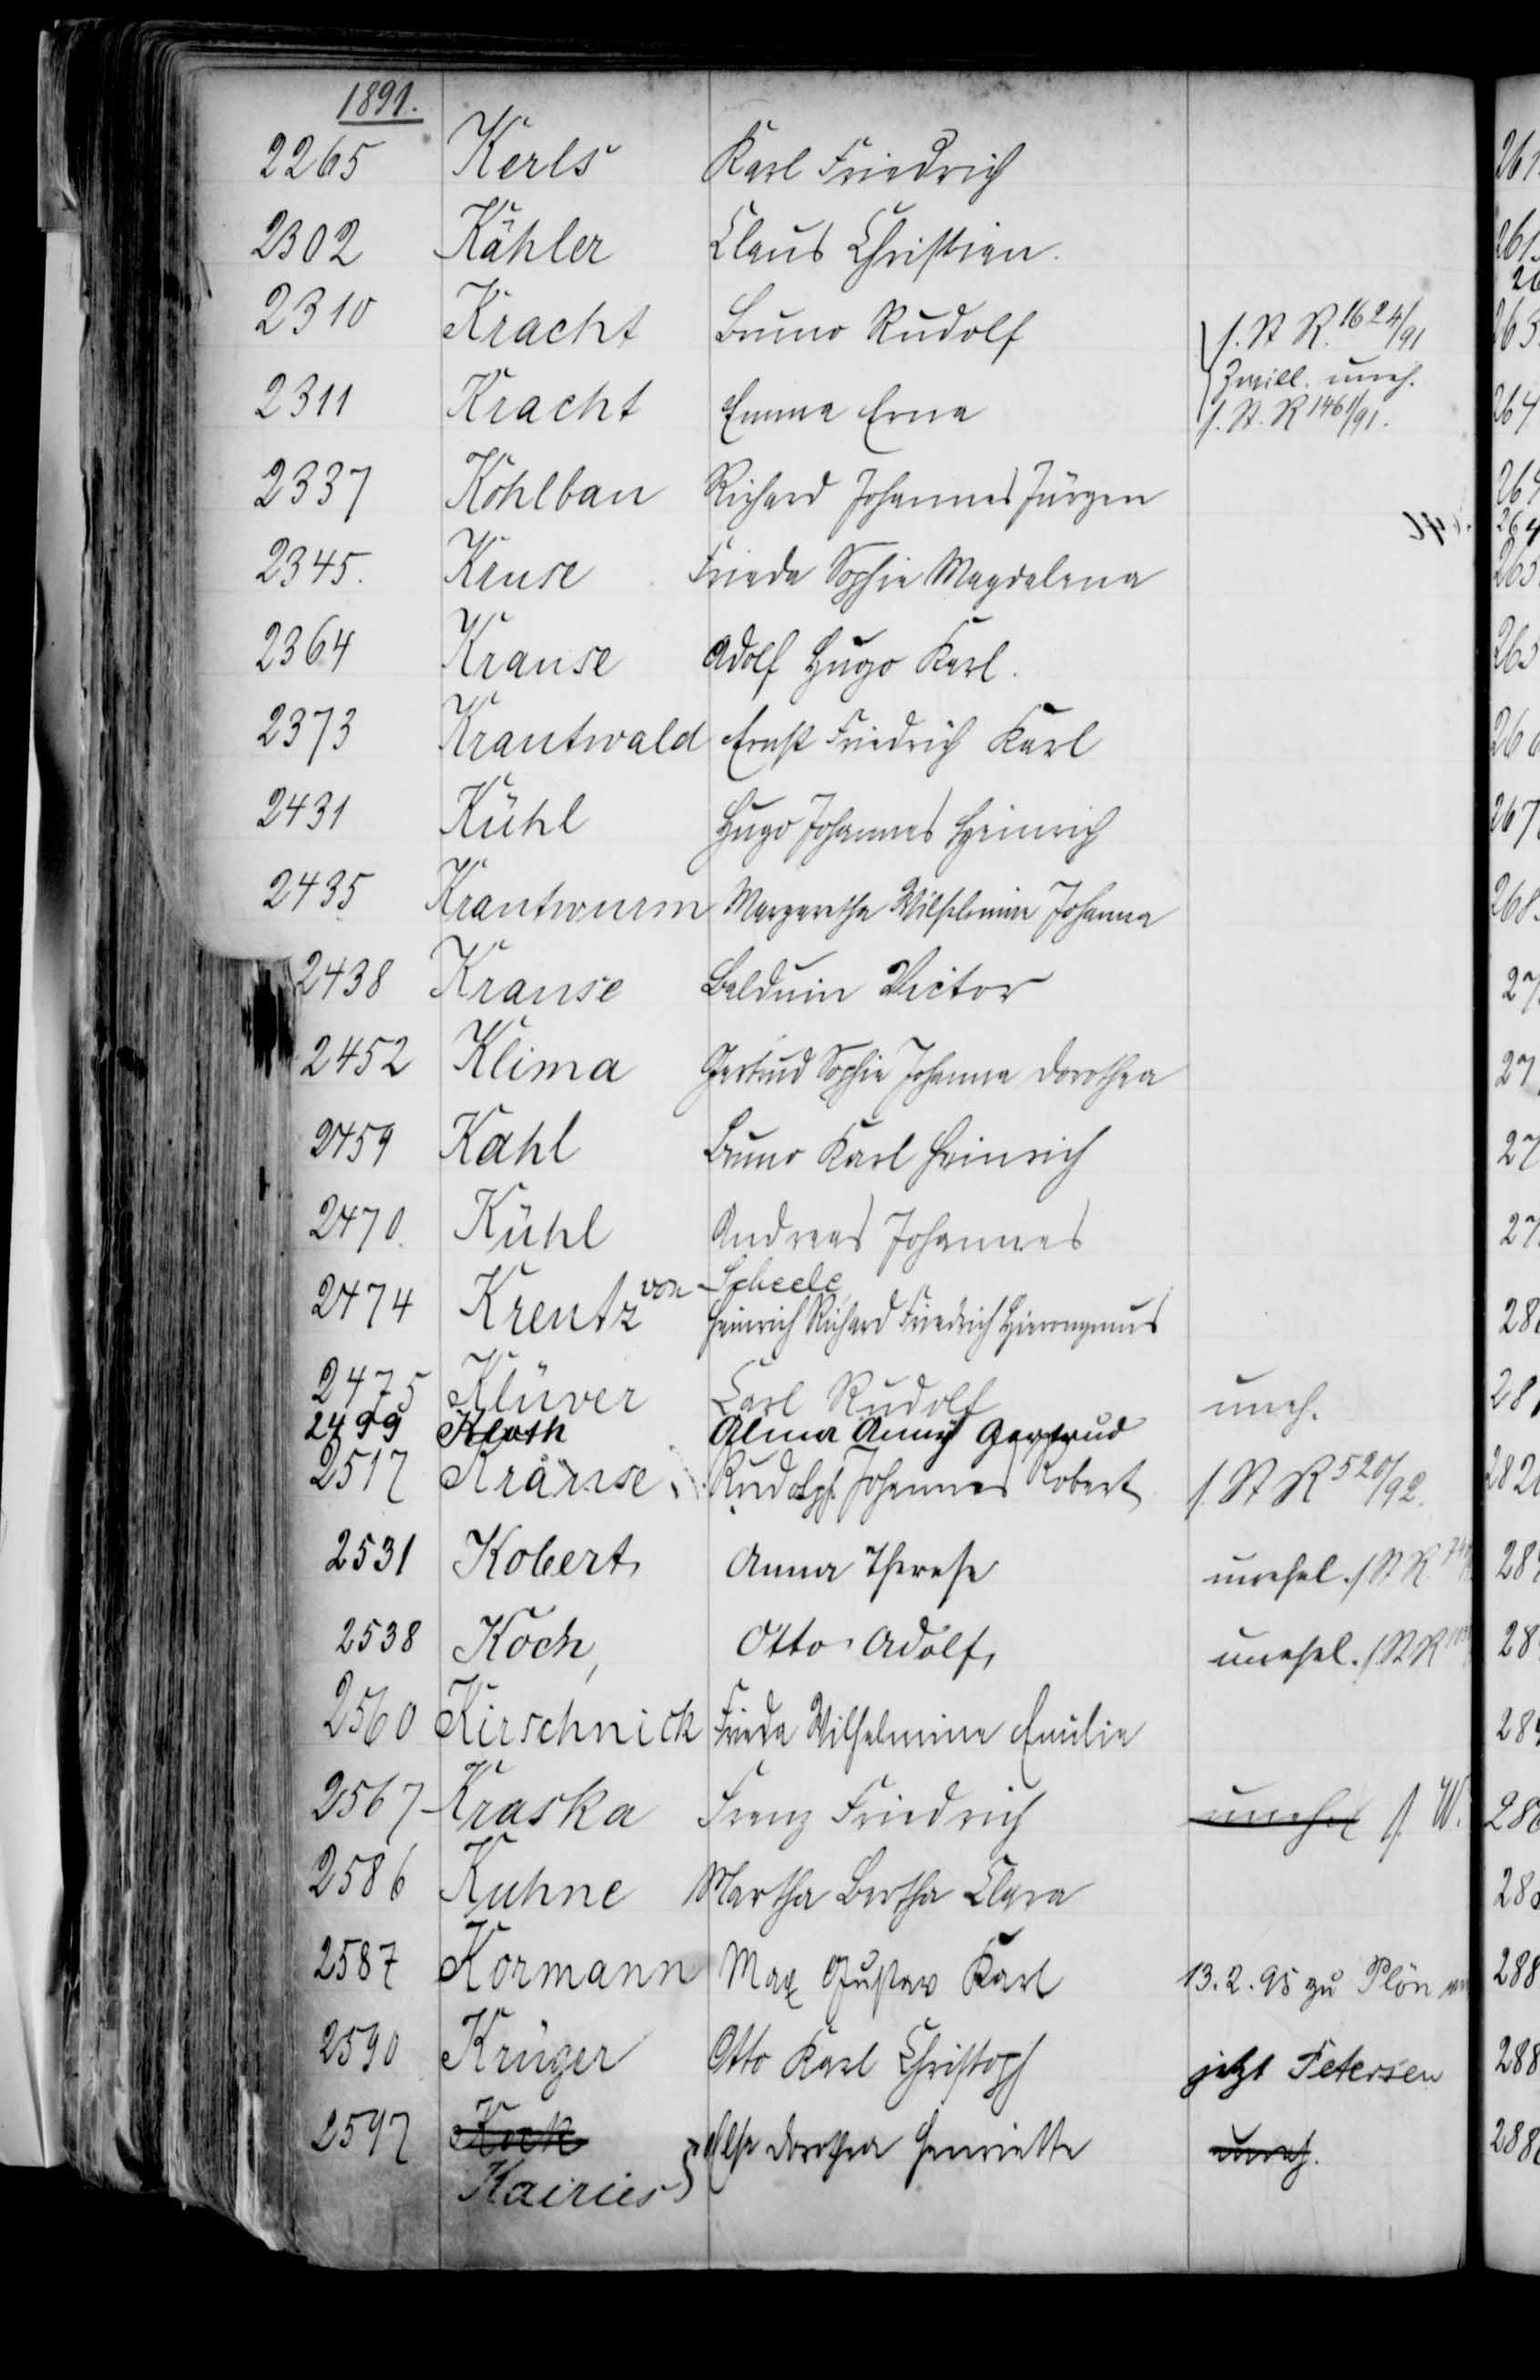 1891.
2265 Kerls Karl Friedrich
2302 Kähler Claus Christian.
2310 Kracht Bruno Rudolf f. St R. 1624/91
Zwill. uneh.
2311 Kracht Emma Erna f. St. R 1461/91.
2337 Kohlbau Richard Johannes Jürgen
2345. Kruse Frieda Sophie Magdalena
2364 Krause Adolf Hugo Karl.
2373 Krautwald Ernst Friedrich Karl
2431 Kühl Hugo Johannes Heinrich
2435 Krautwurm Margaretha Wilhelmine Johanna
2438 Krause Balduin Victor
2452 Klima Gertrud Sophie Johanna Dorothea
2459 Kahl Bruno Karl Heinrich
2470. Kühl Andreas Johannes
2474 Kreutz von Scheele
Heinrich Richard Friedrich Hieronymus
2475 Klüver Carl Rudolf uneh.
2499 Kloth Alma Anny Gertrud
2517 Krause Rudolph Johannes Robert f. St R 520/92.
2531 Kobert, Anna Therese unehel. f St R.
2538 Koch, Otto Adolf, unehel. f St R
2560 Kirschnick Frieda Wilhelmine Emilie
2567 Kraska Franz Friedrich unehel f. W.
2586 Kuhne Martha Bertha Clara
2587 Kormann Max Gustav Karl 13.2.95 zu Plön
2590 Krüger Otto Karl Christoph jetzt Petersen
2597 Kock Else Dorothea Henriette uneh.
Kairies